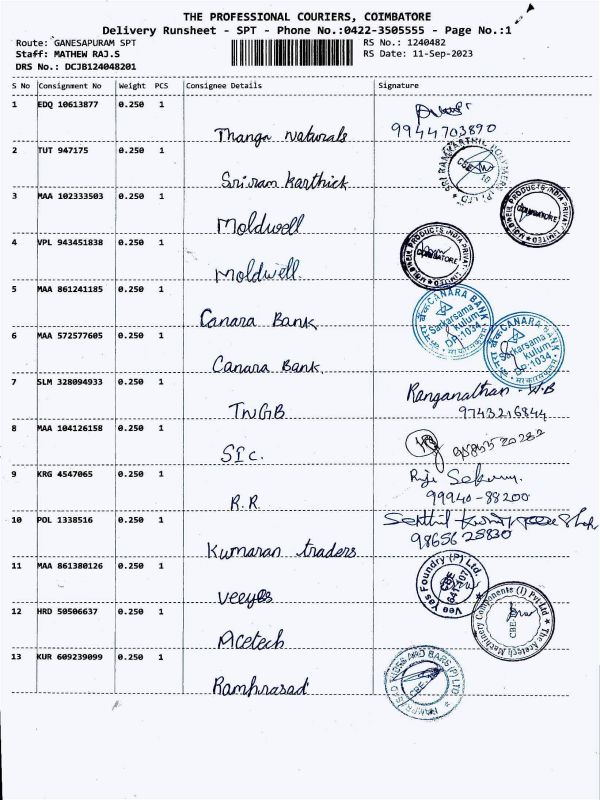 THE PROFESSIONAL COURIERS, COIMBATORE
Delivery Runsheet - SPT - Phone No.:0422-3505555 - Page No.:1
Route: GANESAPURAM SPT
RS No.: 1240482
Staff: MATHEW RAJ.S
RS Date: 11-Sep-2023
DRS No.: DCJB124048201
S No Consignment No Weight PCS Consignee Details Signature
1 EDQ 10613877 0.250 1
Thanga Naturals 9944703890
2 TUT 947175 0.250 1
Sriram Karthick
3 MAA 102333503 0.250 1
Moldwell
4 VPL 943451838 0.250 1
Moldwell
5 MAA 861241185 0.250 1
Canara Bank
CANARA BANK
Sarkarsama Kulum
DP-1034
6 MAA 572577605 0.250 1
Canara Bank.
CANARA BANK
Sarkarsama Kulum
DP-1034
7 SLM 328094933 0.250 1
TNGB
Ranganathan
9743216844
8 MAA 104126158 0.250 1
SIC.
9 KRG 4547065 0.250 1
R.R.
99940-88200
10 POL 1338516 0.250 1
Kumaran traders
9865625830
11 MAA 861380126 0.250 1
veeyes
Vee Yes Foundry (P) Ltd.
12 HRD 50506637 0.250 1
Acetech
The Acetech Machinery Components (I) Pvt Ltd
13 KUR 609239099 0.250 1
Ramprasad